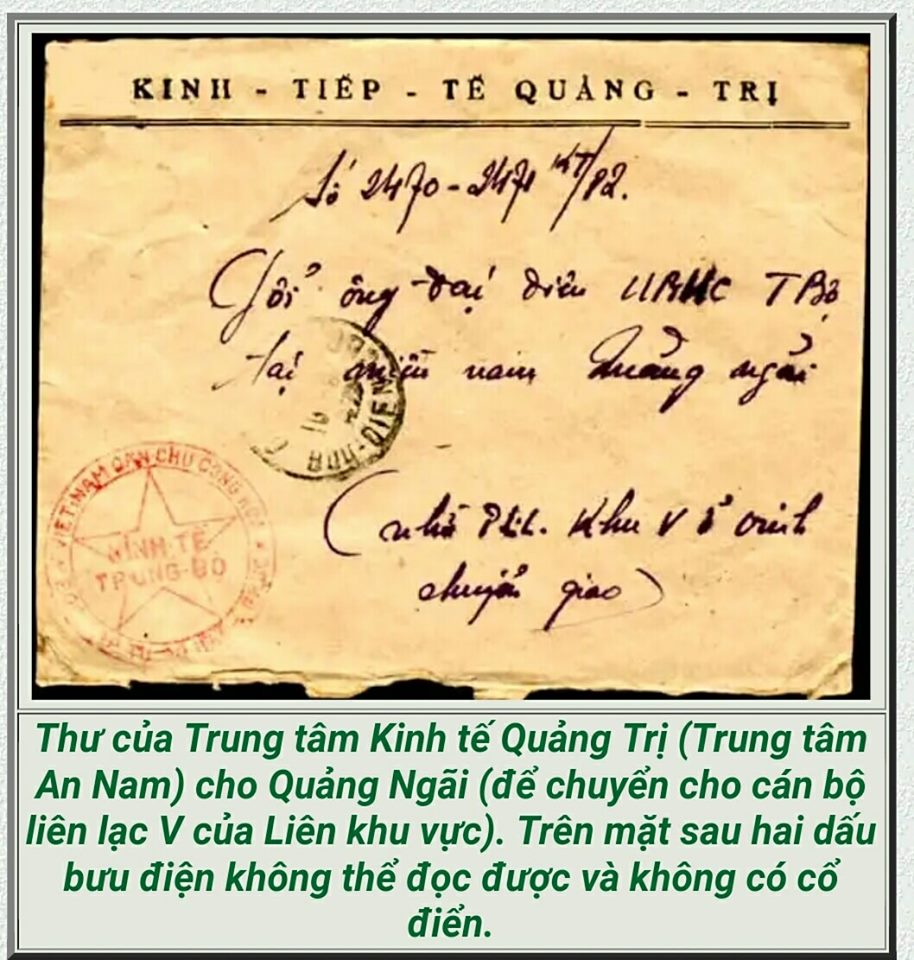 KINH - TIẾP - TẾ QUẢNG - TRỊ
Số 2470-2471 KT/P2.
Gởi ông đại diện UBHC TBộ
tại miền nam Quảng ngãi
BUU-DIEN
VIET-NAM DAN CHU CONG HOA
KINH TẾ
TRUNG-BỘ
(nhờ Khu V ở
chuyển giao)
Thư của Trung tâm Kinh tế Quảng Trị (Trung tâm
An Nam) cho Quảng Ngãi (để chuyển cho cán bộ
liên lạc V của Liên khu vực). Trên mặt sau hai dấu
bưu điện không thể đọc được và không có cổ
điển.